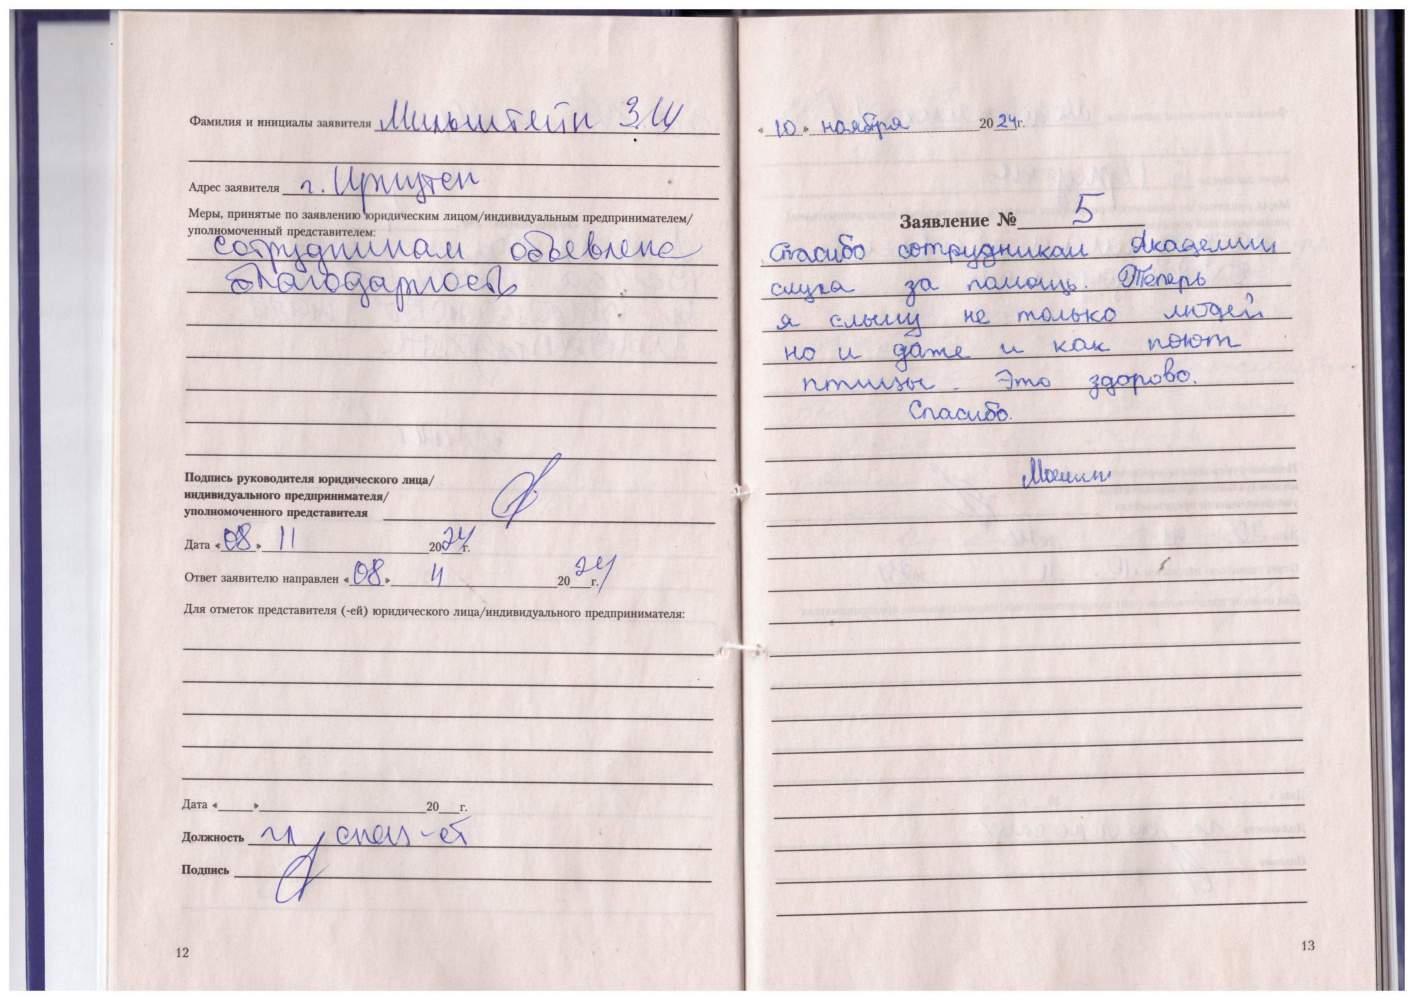 Фамилия и инициалы заявителя Мильштейн З.Ш
Адрес заявителя г. Иркутск
Меры, принятые по заявлению юридическим лицом/индивидуальным предпринимателем/
уполномоченный представителем:
сотрудникам объевлена
благодарность
Подпись руководителя юридического лица/
индивидуального предпринимателя/
уполномоченного представителя
Дата «08» 11 2024г.
Ответ заявителю направлен «08» 11 2024г.
Для отметок представителя (-ей) юридического лица/индивидуального предпринимателя:
Дата «___»___ 20__г.
Должность гл спец-ст
Подпись
12
«10» ноября 2024г.
Заявление № 5
Спасибо сотрудникам Академии
слуха за помощь. Теперь
я слышу не только людей
но и даже и как поют
птицы. Это здорово.
Спасибо.
13